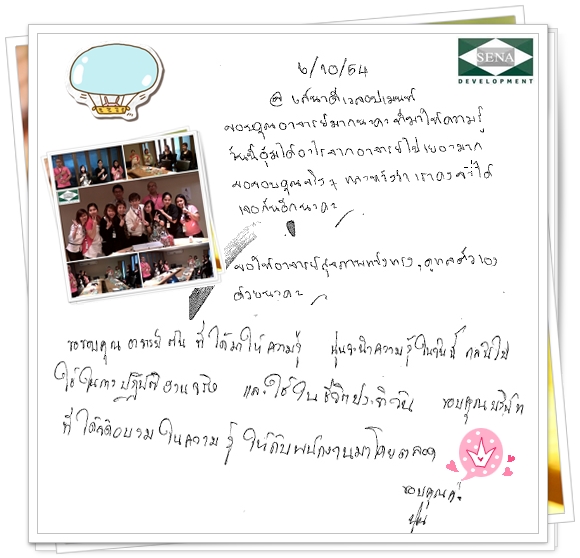 SENA
DEVELOPMENT
6/10/54
@ เสนาดีเวลลอปเมนท์
ขอบคุณอาจารย์มากนะคะ ที่มาให้ความรู้
วันนี้อุ้มได้อะไรจากอาจารย์ไปเยอะมาก
ขอขอบคุณจริงๆ หวังว่า เราคงจะได้
เจอกันอีกนะคะ
ขอให้อาจารย์สุขภาพแข็งแรง, ดูแลตัวเอง
ด้วยนะคะ
ขอขอบคุณ อาจารย์ ที่ได้มาให้ความรู้ จะนำความรู้ในวันนี้ กลับไป
ใช้ในการปฏิบัติงานจริง และใช้ในชีวิตประจำวัน ขอบคุณบริษัท
ที่ได้จัดอบรมในความรู้ ให้กับพนักงานมาโดยตลอด
ขอบคุณค่ะ